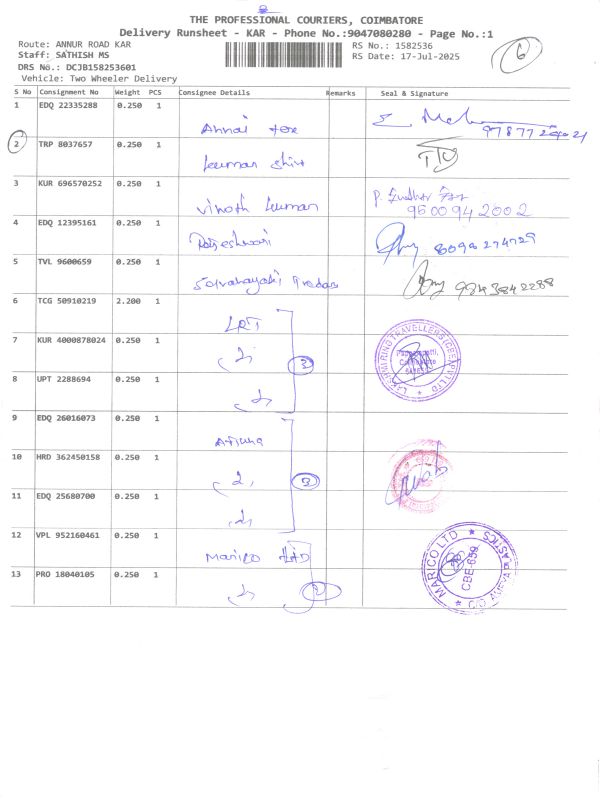 THE PROFESSIONAL COURIERS, COIMBATORE
Delivery Runsheet - KAR - Phone No.:9047080280 - Page No.:1
Route: ANNUR ROAD KAR
Staff: SATHISH MS
DRS No.: DCJB158253601
Vehicle: Two Wheeler Delivery
RS No.: 1582536
RS Date: 17-Jul-2025
6
S No Consignment No Weight PCS Consignee Details Remarks Seal & Signature
1 EDQ 22335288 0.250 1
Annai tex
2 TRP 8037657 0.250 1
kumar
3 KUR 696570252 0.250 1
vinoth kumar
9500942002
4 EDQ 12395161 0.250 1
Rajeshwari
8098274729
5 TVL 9600659 0.250 1
9843842288
6 TCG 50910219 2.200 1
LRT
7 KUR 4000878024 0.250 1
3
LAKSHMI RING TRAVELLERS (CBE) PVT LTD
8 UPT 2288694 0.250 1
9 EDQ 26016073 0.250 1
10 HRD 362450158 0.250 1
3
11 EDQ 25680700 0.250 1
12 VPL 952160461 0.250 1
Marico LTD
MARICO LTD
CBE-659
13 PRO 18040105 0.250 1
2